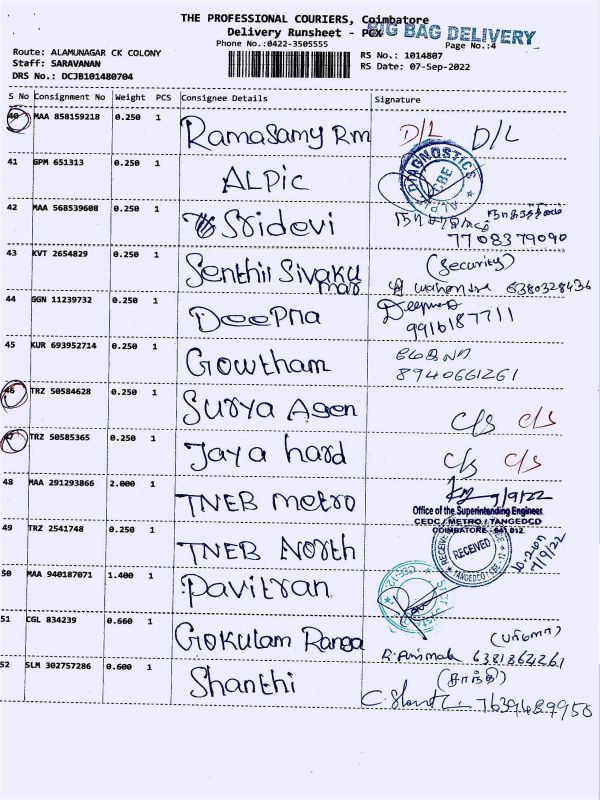 THE PROFESSIONAL COURIERS, Coimbatore
Delivery Runsheet - PCX
BIG BAG DELIVERY
Phone No.:0422-3505555
Page No.:4
Route: ALAMUNAGAR CK COLONY
RS No.: 1014807
Staff: SARAVANAN
RS Date: 07-Sep-2022
DRS No.: DCJB101480704
S No Consignment No Weight PCS Consignee Details Signature
40 MAA 858159218 0.250 1 Ramasamy Rm D/L D/L
41 GPM 651313 0.250 1 ALPic
DIAGNOSTICS CBE
42 MAA 568539608 0.250 1 Sridevi
7708379090
43 KVT 2654829 0.250 1 Senthil Sivaku
mar
(Security)
6380328436
44 GGN 11239732 0.250 1 Deepna Deepna
9916187711
45 KUR 693952714 0.250 1 Gowtham
8940661261
46 TRZ 50584628 0.250 1 Surya Agen C/S C/S
47 TRZ 50585365 0.250 1 Jaya hard C/S C/S
48 MAA 291293866 2.000 1 TNEB metro 7/9/22
Office of the Superintending Engineer
CEDC / METRO / TANGEDCO
COIMBATORE - 641 012.
49 TRZ 2541748 0.250 1 TNEB North
RECEIVED
TANGEDCO
7/9/22
50 MAA 940187071 1.400 1 Pavitran
51 CGL 834239 0.660 1 Gokulam Ranga
6381864261
52 SLM 302757286 0.600 1 Shanthi
(சாந்தி)
7639489950